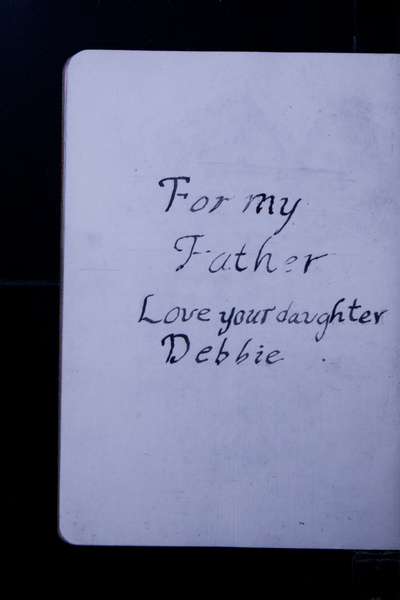 For my
Father
Love your daughter
Debbie